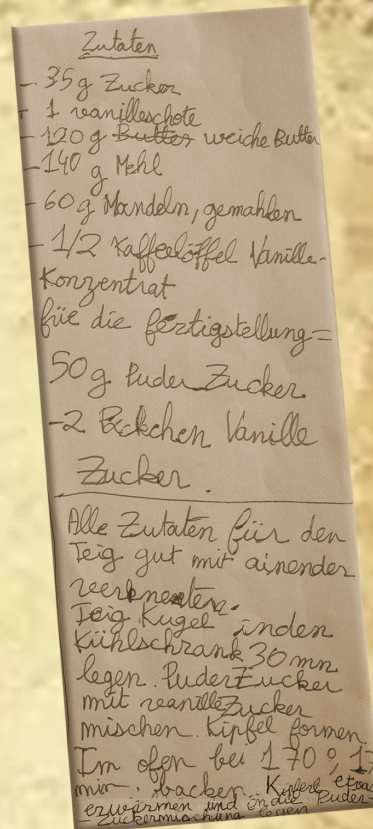 Zutaten
- 35g Zucker
- 1 vanilleschote
- 120 g Butter weiche Butter
- 140 g Mehl
- 60 g Mandeln, gemahlen
- 1/2 Kaffeelöffel Vanille-
Konzentrat
für die fertigstellung =
50g Puder Zucker
-2 Päckchen Vanille
Zucker.
Alle Zutaten für den
Teig gut mit ainender
Teig Kugel inden
Kühlschrank 30 mn
legen. PuderZucker
mit vanilleZucker
mischen. Kipfel formen
Im ofen bei 170°, 17
min. backen. Kipferl etwas
erwärmen und in die Puder-
Zuckermischung legen